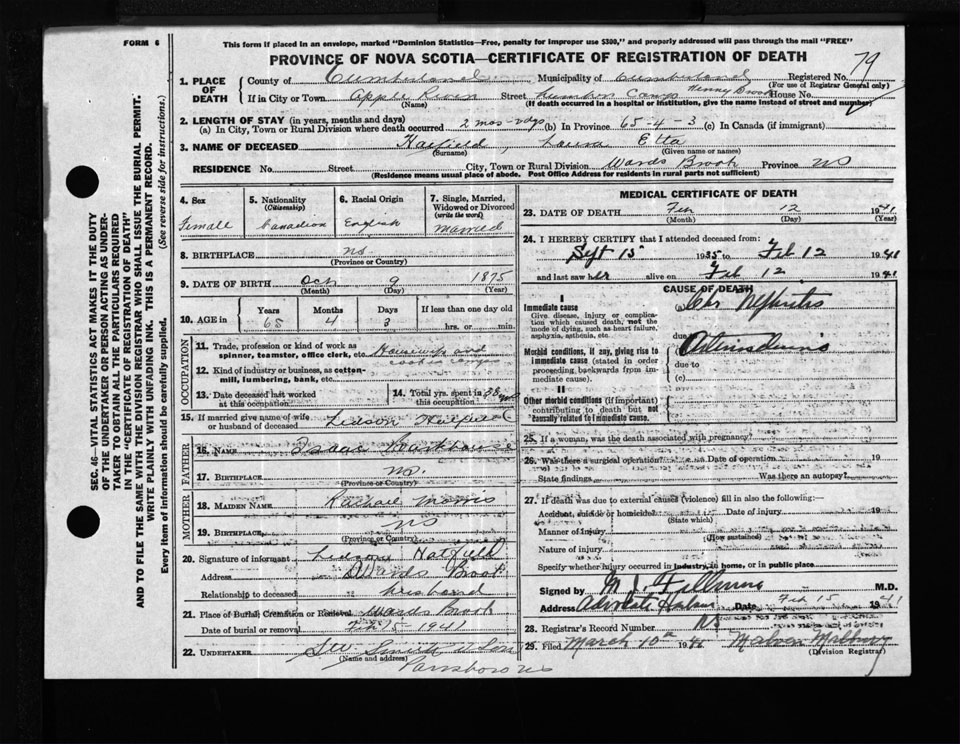 FORM 6
This form if placed in an envelope, marked "Dominion Statistics—Free, penalty for improper use $300," and properly addressed will pass through the mail "FREE"
PROVINCE OF NOVA SCOTIA—CERTIFICATE OF REGISTRATION OF DEATH
79
1. PLACE OF DEATH County of Cumberland Municipality of Cumberland Registered No.
(For use of Registrar General only)
If in City or Town Apple River Street Lumber Camp Henny Brook House No.
(Name) (If death occurred in a hospital or institution, give the name instead of street and number)
2. LENGTH OF STAY (in years, months and days)
(a) In City, Town or Rural Division where death occurred 2 mos (b) In Province 65-4-3 (c) In Canada (if immigrant)
3. NAME OF DECEASED Hatfield, Etta
(Surname) (Given name or names)
RESIDENCE No. Street City, Town or Rural Division Wards Brook Province NS
(Residence means usual place of abode. Post Office Address for residents in rural parts not sufficient)
4. Sex Female
5. Nationality (Citizenship) Canadian
6. Racial Origin English
7. Single, Married, Widowed or Divorced (write the word) Married
8. BIRTHPLACE NS
(Province or Country)
9. DATE OF BIRTH Oct 9 1875
(Month) (Day) (Year)
10. AGE in Years Months Days If less than one day old
65 4 3 hrs. or min.
OCCUPATION
11. Trade, profession or kind of work as spinner, teamster, office clerk, etc. Housewife and
12. Kind of industry or business, as cotton-mill, lumbering, bank, etc.
13. Date deceased last worked at this occupation
14. Total yrs. spent in this occupation 38
15. If married give name of wife or husband of deceased Hatfield
FATHER
16. NAME Isaac
17. BIRTHPLACE NS.
(Province or Country)
MOTHER
18. MAIDEN NAME Morris
19. BIRTHPLACE NS
(Province or Country)
20. Signature of informant Hatfield
Address Wards Brook
Relationship to deceased husband
21. Place of Burial, Cremation or Removal Wards Brook
Date of burial or removal Feb 15 - 1941
22. UNDERTAKER Smith & Son
(Name and address)
Parrsboro NS
MEDICAL CERTIFICATE OF DEATH
23. DATE OF DEATH Feb 12 1941
(Month) (Day) (Year)
24. I HEREBY CERTIFY that I attended deceased from:
Sept 15 1935 to Feb 12 1941
and last saw her alive on Feb 12 1941
CAUSE OF DEATH
I
Immediate cause
Give disease, injury or complication which caused death, not the mode of dying, such as heart failure, asphyxia, asthenia, etc.
(a) Chr Nephritis
due to
Morbid conditions, if any, giving rise to immediate cause (stated in order proceeding backwards from immediate cause).
due to
(c)
II
Other morbid conditions (if important) contributing to death but not causally related to immediate cause.
25. If a woman, was the death associated with pregnancy?
26. Was there a surgical operation? Date of operation 19
State findings Was there an autopsy?
27. If death was due to external causes (violence) fill in also the following:—
Accident, suicide or homicide? Date of injury 19
(State which)
Manner of injury
(How sustained)
Nature of injury
Specify whether injury occurred in industry, in home, or in public place
Signed by M.D.
Address Advocate Harbour Date Feb 15 1941
28. Registrar's Record Number
29. Filed March 10th 19
(Division Registrar)
SEC. 46—VITAL STATISTICS ACT MAKES IT THE DUTY
OF THE UNDERTAKER OR PERSON ACTING AS UNDER-
TAKER TO OBTAIN ALL THE PARTICULARS REQUIRED
IN THE "CERTIFICATE OF REGISTRATION OF DEATH"
AND TO FILE THE SAME WITH THE DIVISION REGISTRAR WHO SHALL ISSUE THE BURIAL PERMIT.
WRITE PLAINLY WITH UNFADING INK. THIS IS A PERMANENT RECORD.
Every item of information should be carefully supplied. (See reverse side for instructions.)